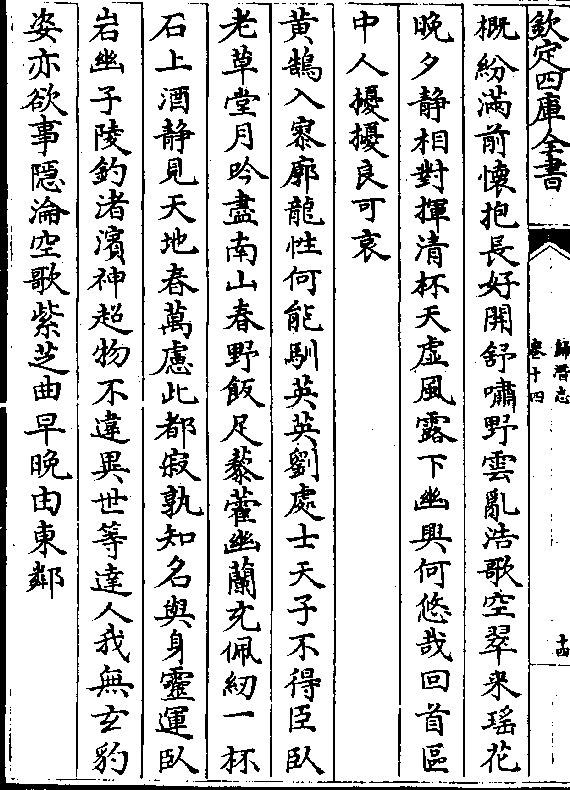 欽定四庫全書
歸潛志
卷十四
十四
概紛滿前懷抱長好開舒嘯野雲亂浩歌空翠来瑶花
晚夕静相對揮清杯天虚風露下幽興何悠哉回首區
中人擾擾良可哀
黄鵠入寥廓龍性何能馴英英劉處士天子不得臣臥
老草堂月吟盡南山春野飯足藜藿幽蘭充佩紉一杯
石上酒静見天地春萬慮此都寂孰知名與身靈運臥
岩幽子陵釣渚濱神超物不違異世等達人我無玄豹
姿亦欲事隱淪空歌紫芝曲早晚由東鄰